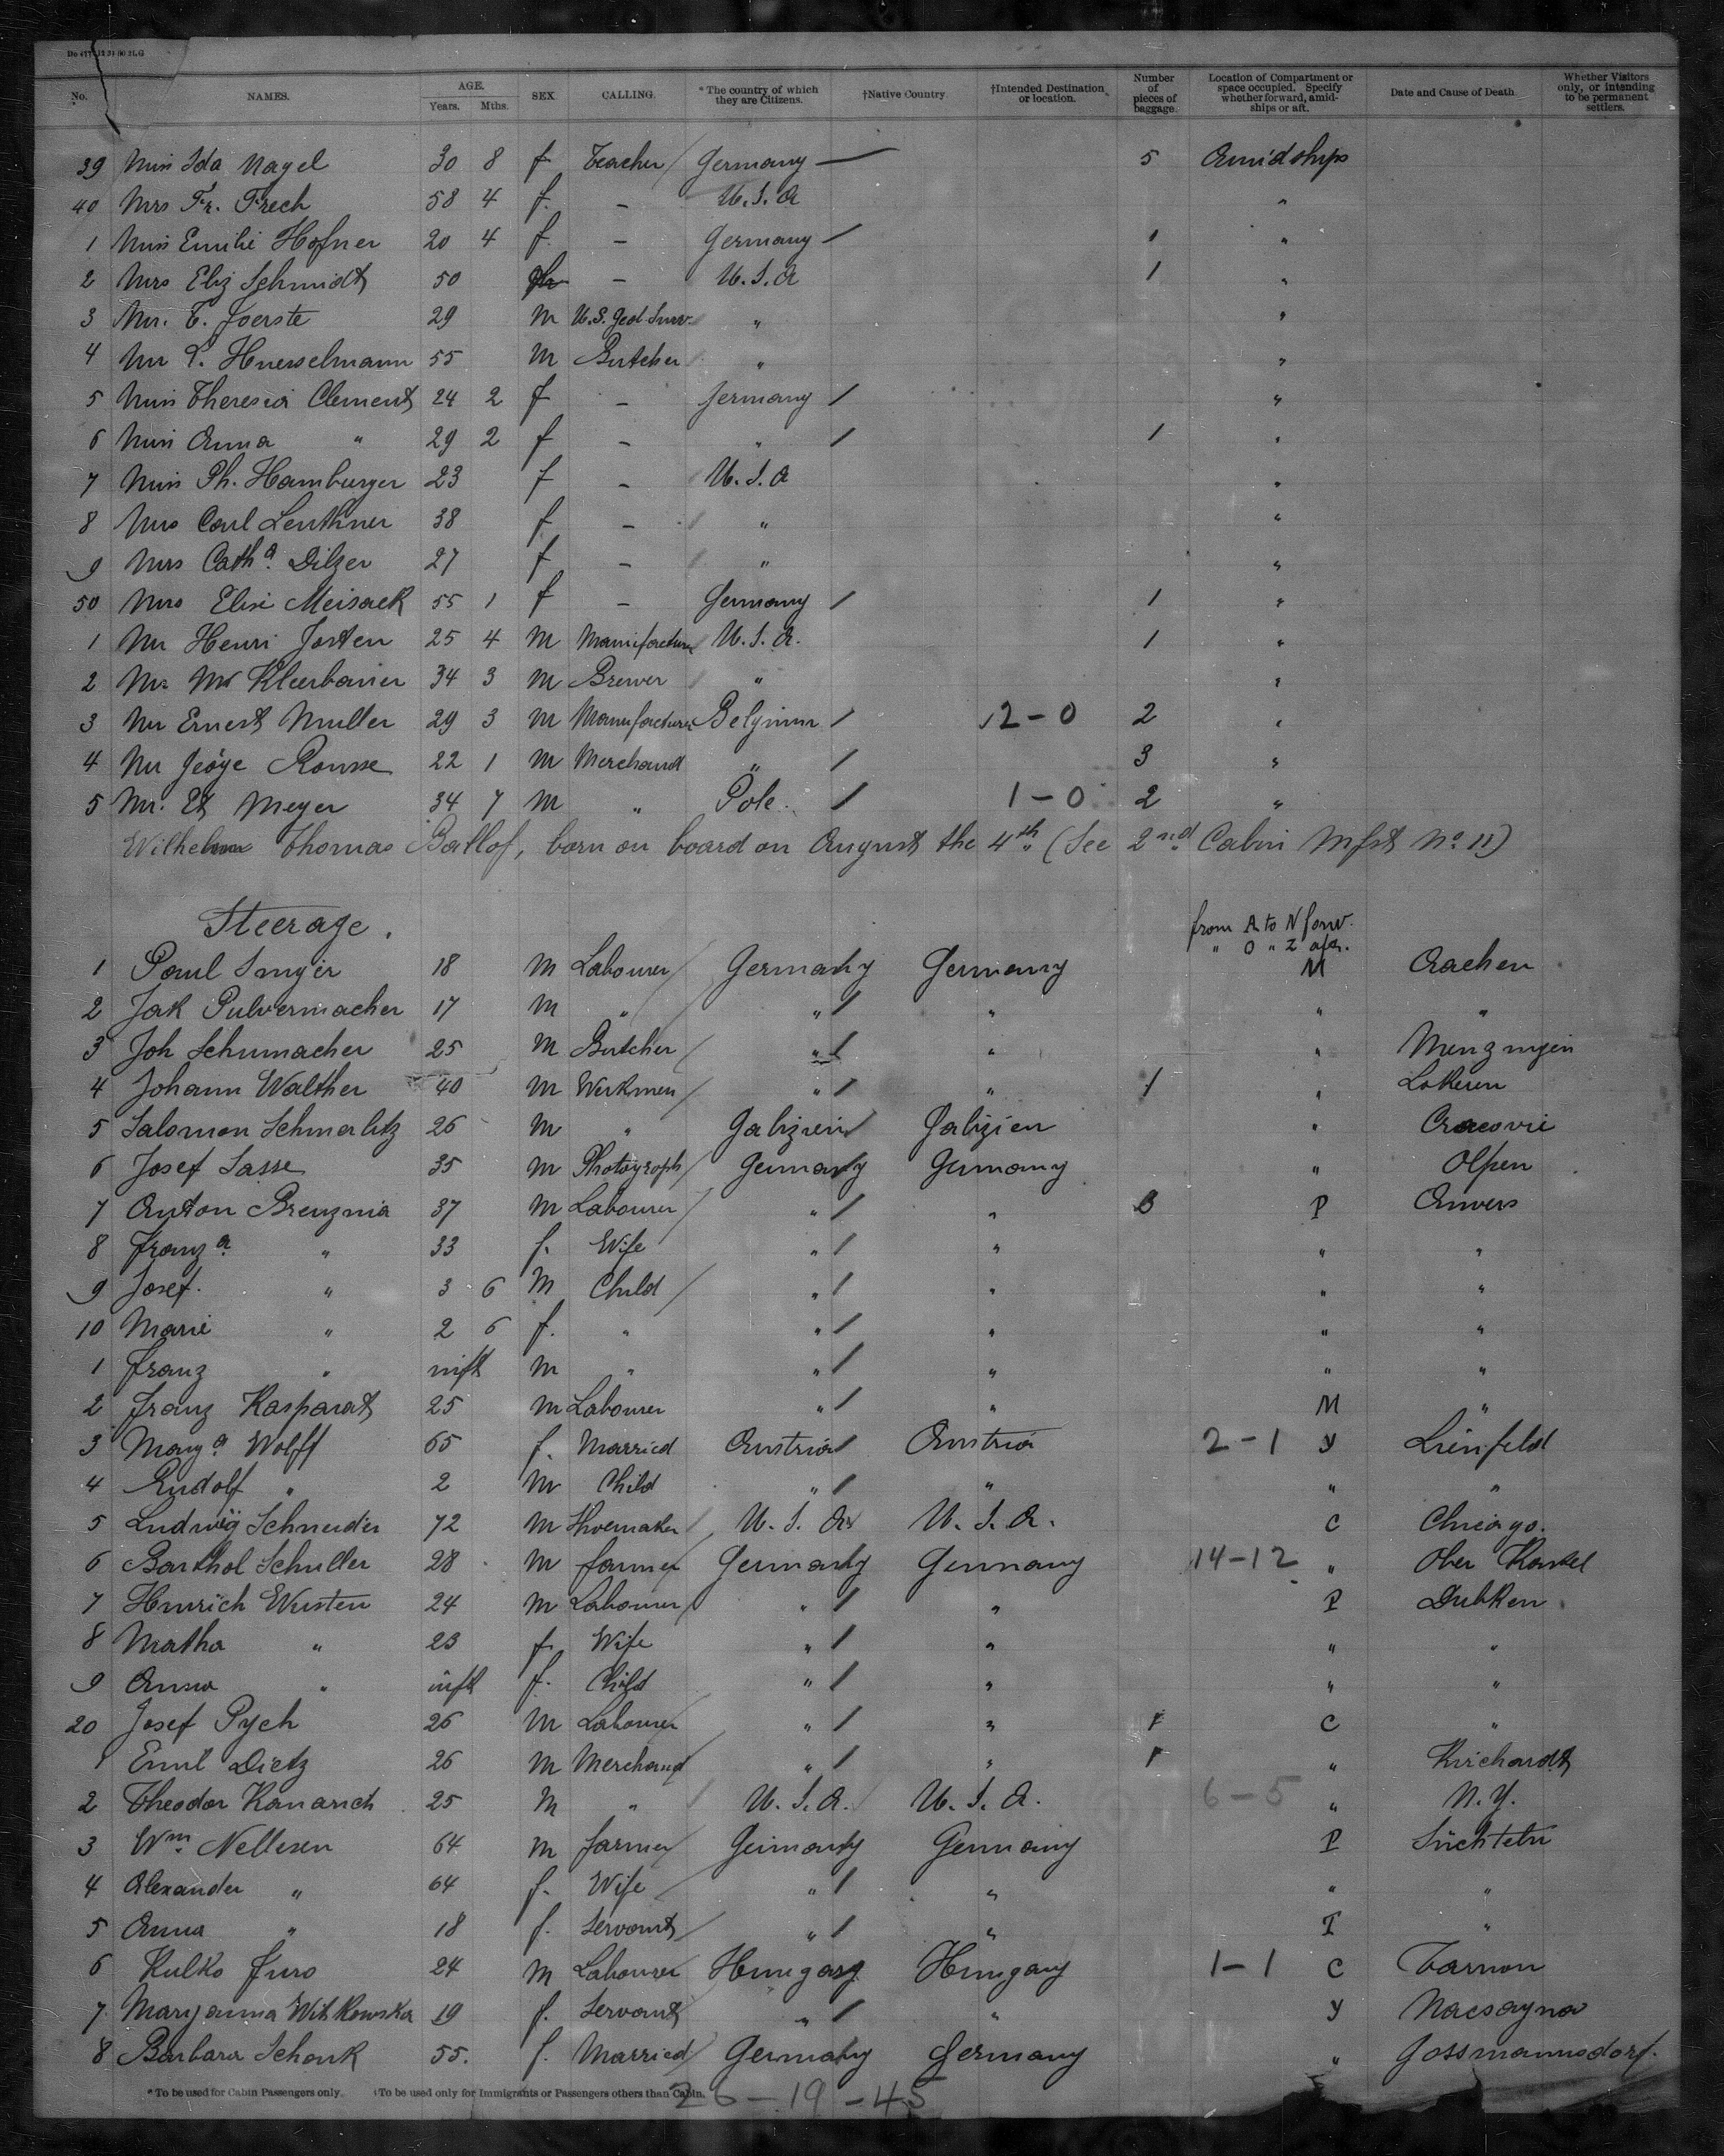 No. NAMES. AGE. Years. Mths. SEX. CALLING. *The country of which they are Citizens. †Native Country †Intended Destination or location. Number of pieces of baggage. Location of Compartment or space occupied. Specify whether forward, amidships or aft. Date and Cause of Death. Whether Visitors only, or intending to be permanent settlers.
39 Miss Ida Nagel 30 8 f Teacher Germany 5 Amidships
40 Mrs Fr. Frech 58 4 f. – U.S.A "
1 Miss Emilie Hofner 20 4 f. – Germany 1 "
2 Mrs Eliz Schmidt 50 – U.S.A 1 "
3 Mr. T. Joerste 29 M U.S. Geol. Surv. " "
4 Mr L. Huesselmann 55 M Butcher " "
5 Miss Theresia Clement 24 2 f – Germany "
6 Miss Anna " 29 2 f – " 1 "
7 Miss Ph. Hamburger 23 f – U.S.A "
8 Mrs Carl Leuthner 38 f – " "
9 Mrs Cath a. Dilzer 27 f – " "
50 Mrs Elise Meisack 55 1 f – Germany 1 "
1 Mr Henri Josten 25 4 M Manufacturer U.S.A. 1 "
2 Mr Kleerbauer 34 3 M Brewer " "
3 Mr Ernest Muller 29 3 M Manufacturer Belgium 2-0 2 "
4 Mr George Rousse 22 1 M Merchand " 3 "
5 Mr. Meyer 34 7 M " Pole. 1-0 2 "
Wilhelm Thomas Ballof, born on board on August the 4th (See 2nd Cabin Mfst No. 11)
Steerage.
from A to N forw.
" O " Z aft.
1 Paul 18 M Labourer Germany Germany M Aachen
2 Jak Pulvermacher 17 M " " " " "
3 Joh Schumacher 25 M Butcher " " "
4 Johann Walther 40 M Werkmen " " 1 " Lokeren
5 Salomon Schmalitz 26 M " Galizien Galizien " Cracovie
6 Josef Sasse 35 M Photograph Germany Germany " Olpen
7 Anton 37 M Labourer " " 3 P Anvers
8 Franz a. " 33 f. Wife " " " "
9 Josef. " 3 6 M Child " " " "
10 Marie " 2 6 f. " " " " "
1 Franz " inft M " " " " "
2 Franz Kasparat 25 M Labourer " " M "
3 Marg a. Wolff 65 f. Married Austria Austria 2-1 Y Lienfeld
4 Rudolf " 2 M Child " " " "
5 Ludwig Schneider 72 M Shoemaker U.S.A U.S.A. C Chicago.
6 Barthol Schuller 28 M farmer Germany Germany 14-12 " Ober
7 Heinrich Wusten 24 M Labourer " " P Dubken
8 Martha " 23 f Wife " " " "
9 Anna " inft f. Child " " " "
20 Josef Pych 26 M Labourer " " 1 C "
1 Emil Dietz 26 M Merchand " " 1 " Kirchardt
2 Theodor Kanarich 25 M " U.S.A. U.S.A. 6-5 " N.Y.
3 Wm. Nellesen 64 M farmer Germany Germany P Süchteln
4 Alexander " 64 f. Wife " " " "
5 Anna " 18 f. Servant " " T "
6 Kulko Juro 24 M Labourer Hungary Hungary 1-1 C Tarnon
7 Maryanna Witkowska 19 f. Servant " " Y
8 Barbara Schonk 55. f. Married Germany Germany " Gossmannsdorf.
*To be used for Cabin Passengers only. †To be used only for Immigrants or Passengers others than Cabin.
26-19-45